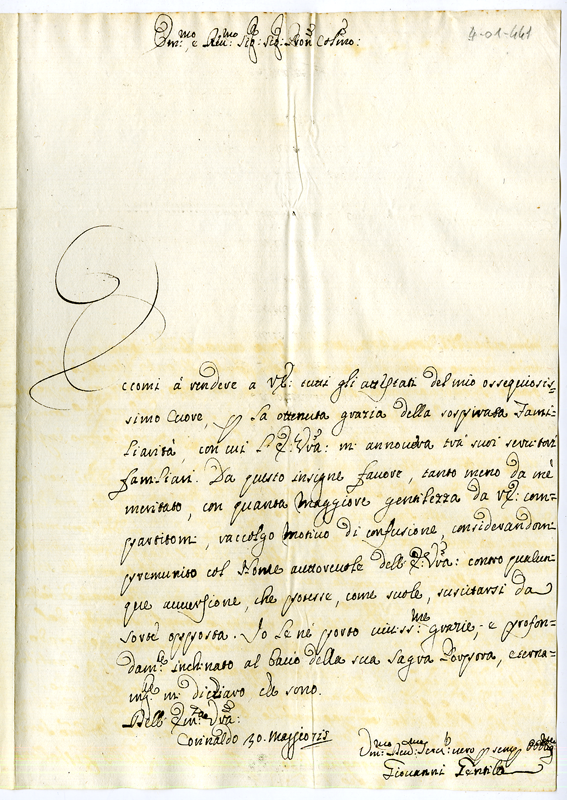 4-01-441
Em:mo, e Rev:mo Sig: Sig: Pron Colmo:
Eccomi à rendere a VE: tutti gli attestati del mio ossequiosis=
simo Cuore, p la ottenuta grazia della sospirata Fami-
liarità, con cui l'E: Vra: mi annovera trà suoi servitori
famliari. Da questo insigne favore, tanto meno da mè
meritato, con quanta maggiore gentilezza da VE: com=
partitomi, raccolgo motivo di confusione, considerandomi
premunito col Nome autorevole dell'E: Vra: contro qualun-
que avversione, che potesse, come suole, suscitarsi da
sorte opposta. Io le né porto viviss:me grazie, e profon-
dam:te inclinato al bacio della sua Sagra Porpora, eterna-
m:te mi dichiaro che sono.
Dell' Em:za Vra:
Corinaldo 30. Maggio 725
Um:mo Dev:mo Serv:re vero p semp Obblig
Giovanni Gentili